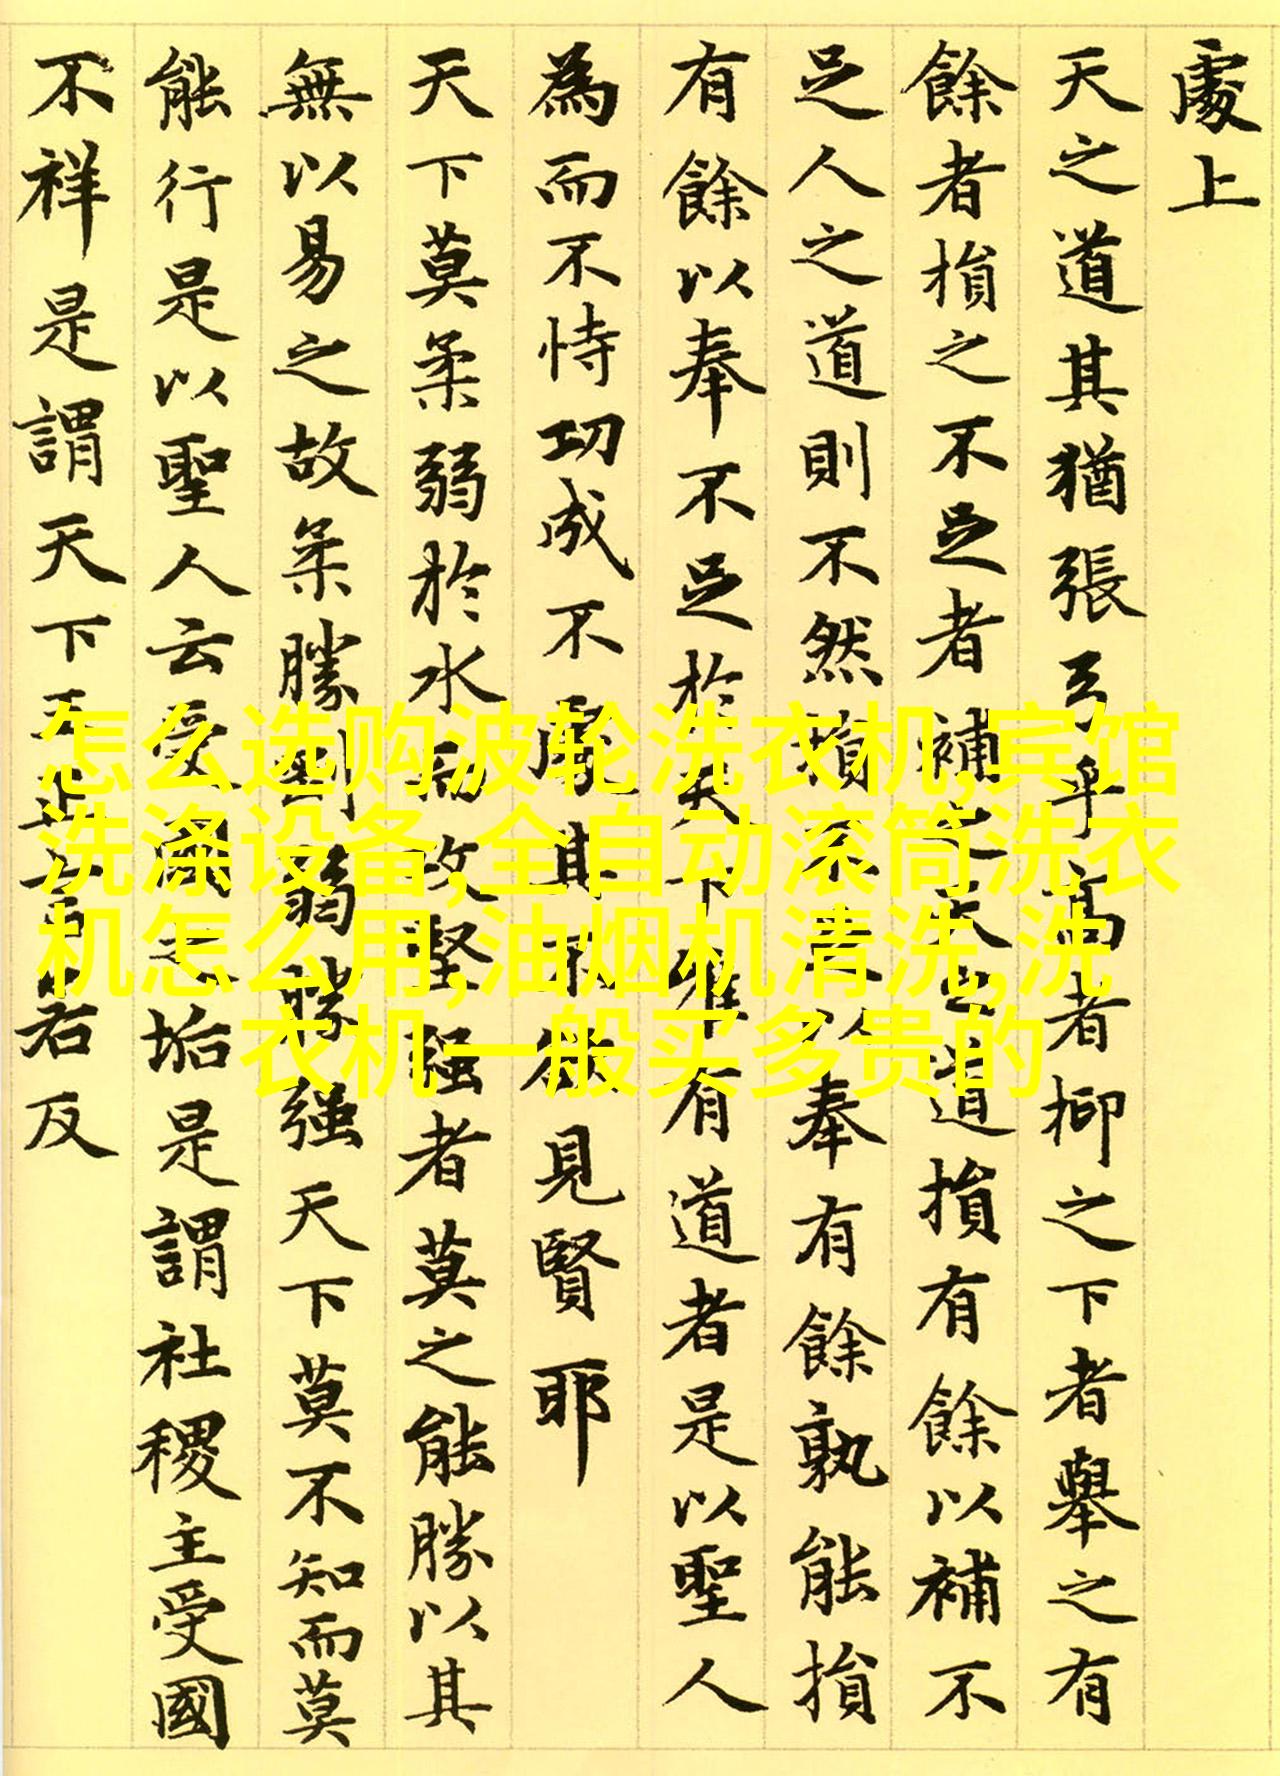 處上
天之道其猶張弓乎高者抑之下者舉之有
餘者損之不足者補之天之道損有餘以補不
足人之道則不然損不足以奉有餘孰能損
有餘以奉不足於天下唯有道者是以聖人
為而不恃功成不處其不欲見賢耶
天下莫柔弱於水而攻堅强者莫之能勝以其
無以易之故柔勝剛弱勝强天下莫不知而莫
能行是以聖人云受國之垢是謂社稷主受國
不祥是謂天下王正言若反
怎么选购波轮洗衣机,宾馆
洗涤设备,全自动滚筒洗衣
机怎么用,油烟机清洗,洗
衣机一般买多贵的